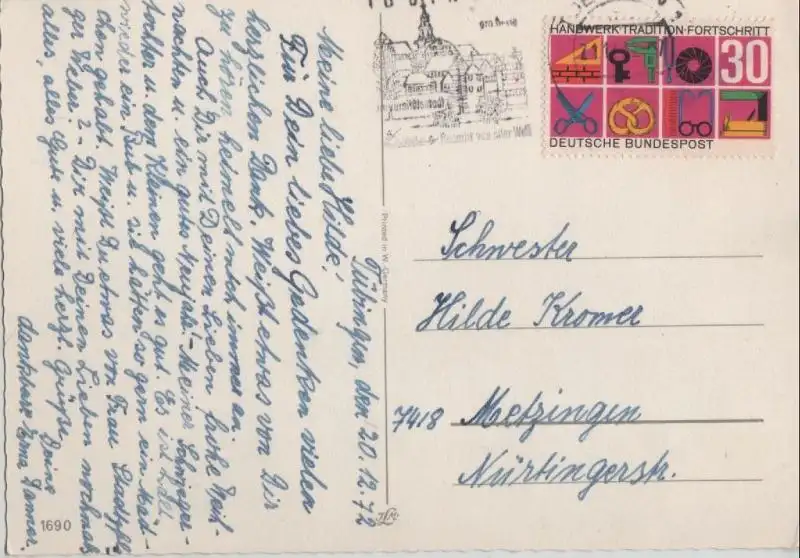 Tübingen, den 20.12.72
Meine liebe Hilde!
Für Dein liebes Gedenken vielen
herzlichen Dank. Weißt etwas von Dir
zu hören, heimelt mich immer an.
Auch Dir mit Deinen Lieben frohe Weih-
nachten u. ein gutes Neujahr! Meiner Schwieger-
tochter u. dem Kleinen geht es gut. Es ist halt
wieder ein Bub u. sie hätten so gern ein Mäd-
chen gehabt. Weißt Du etwas von Frau Stadtpfr
Weber? - Dir mit Deinen Lieben nochmals
alles, alles Gute u. viele herzl. Grüße, Deine
dankbare Danner.
1690
Printed in W.-Germany
HANDWERK·TRADITION·FORTSCHRITT
30
DEUTSCHE BUNDESPOST
Schwester
Hilde Kromer
7418 Metzingen
Nürtingerstr.